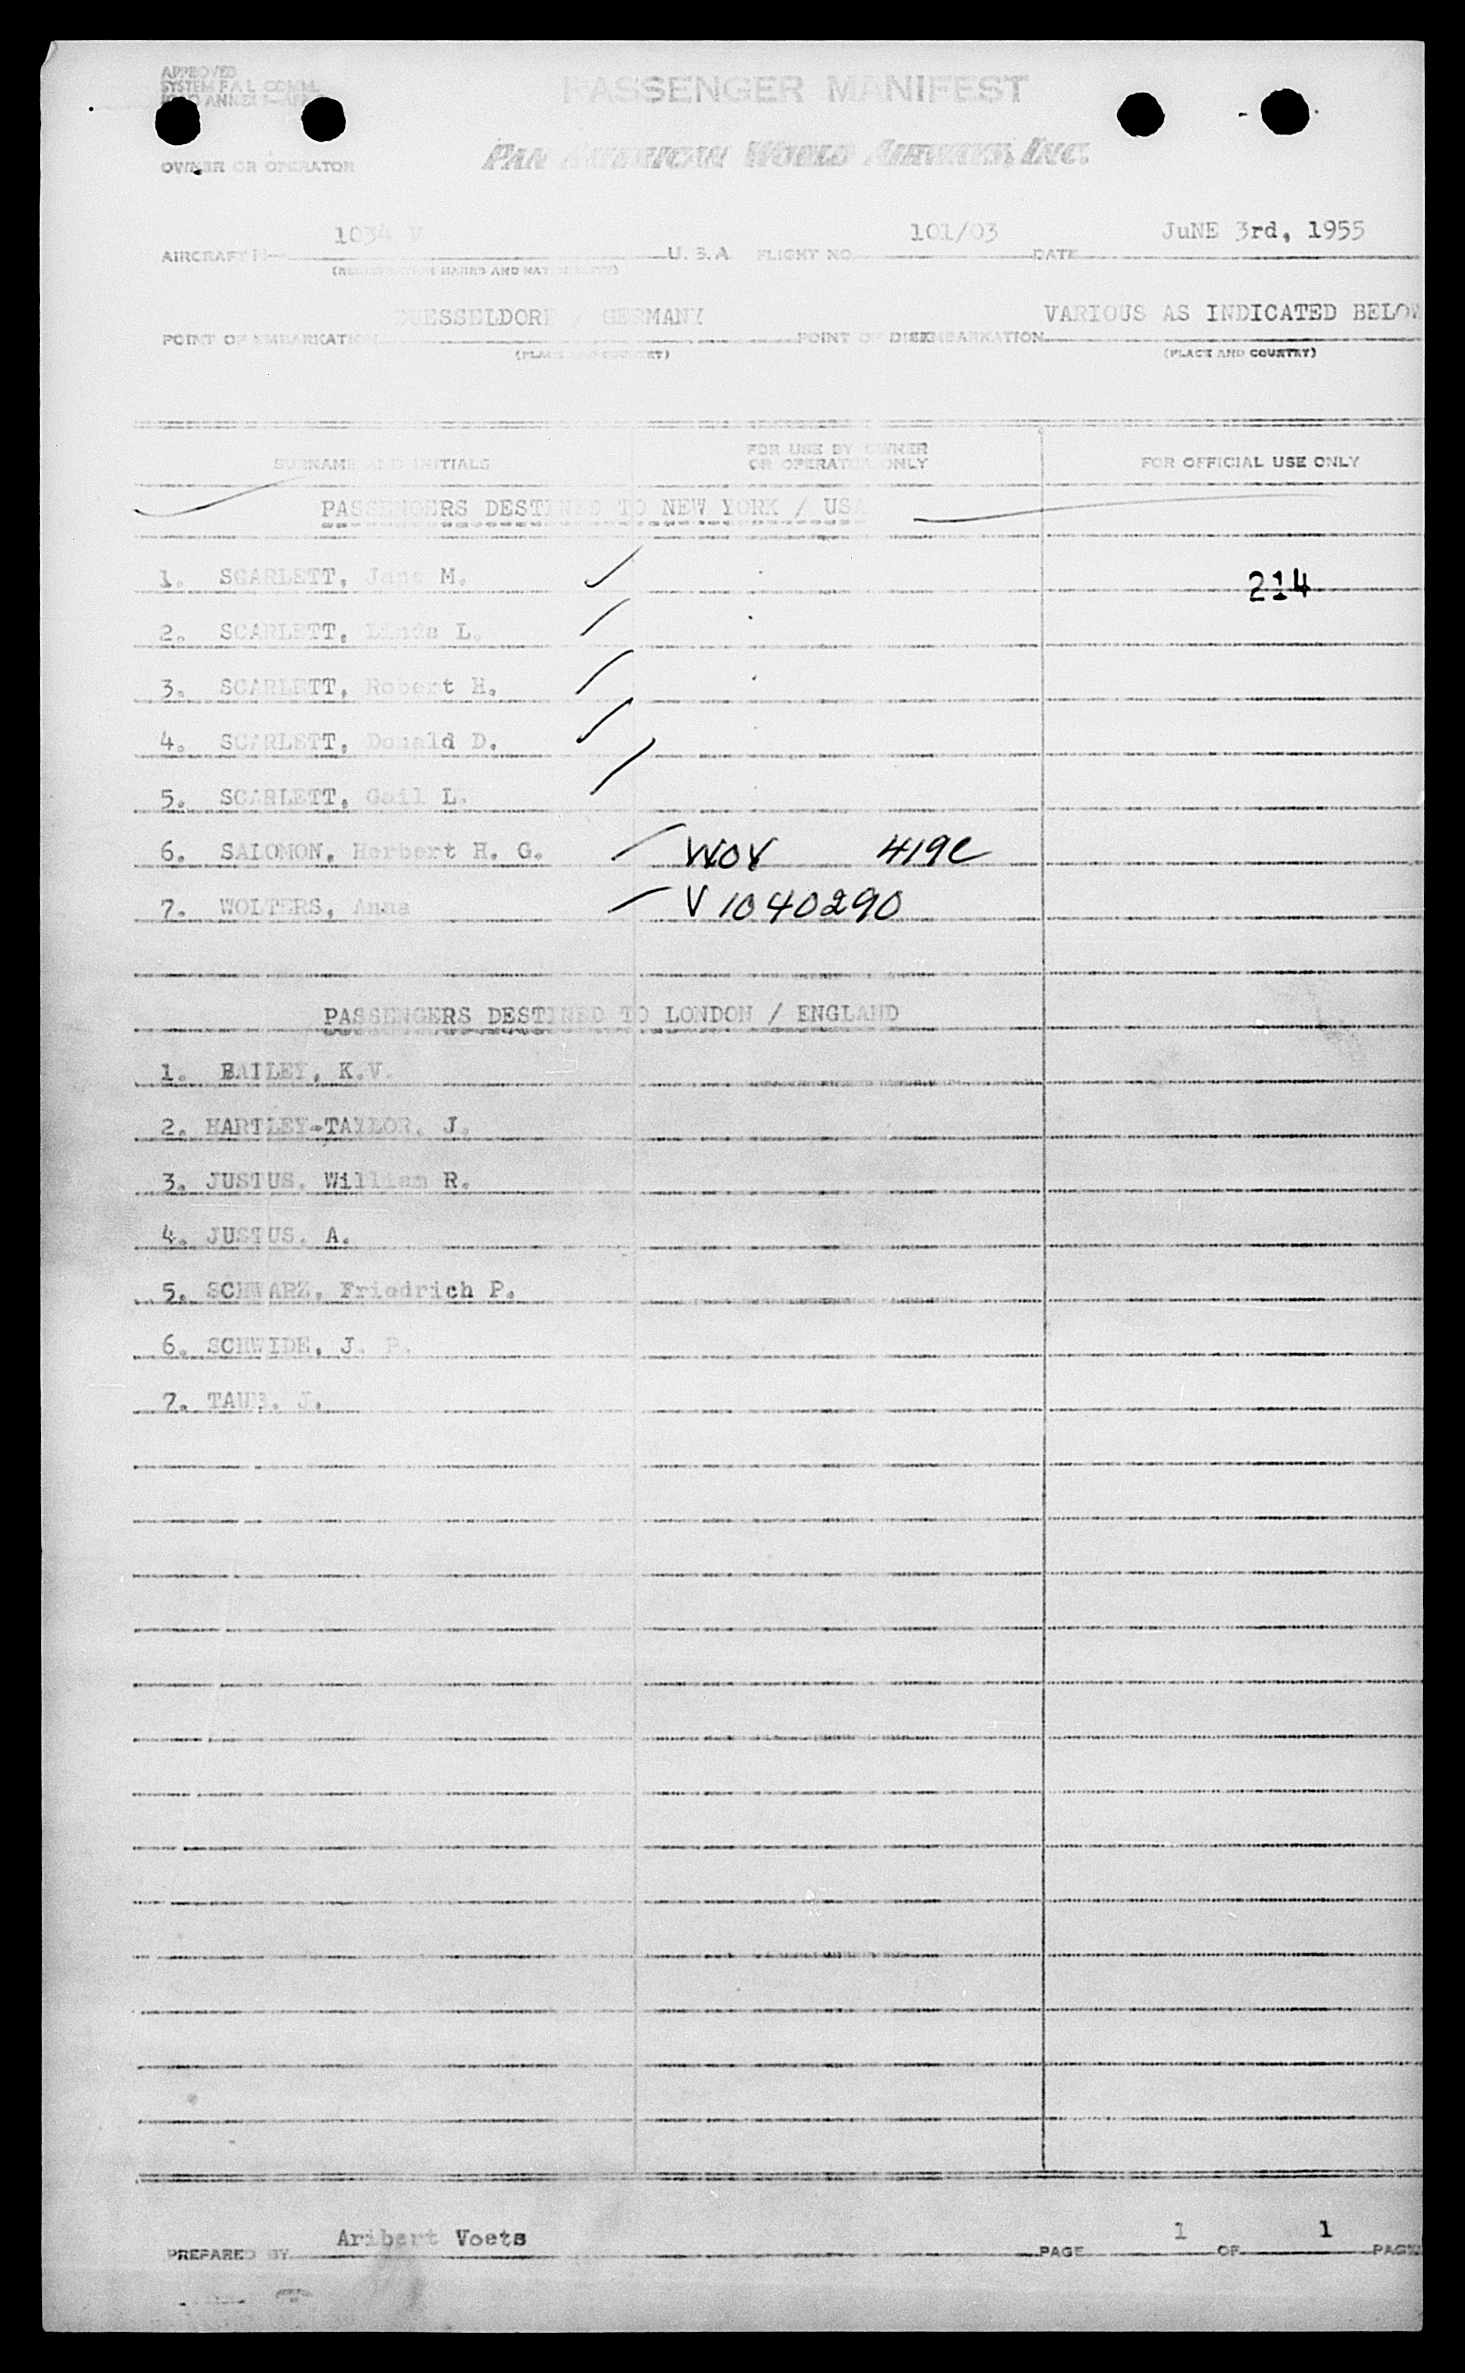 APPROVED
SYSTEM F A L COMM.
PASSENGER MANIFEST
OWNER OR OPERATOR PAN AMERICAN WORLD AIRWAYS, INC.
AIRCRAFT N 1034 V U. S. A FLIGHT NO. 101/03 DATE JuNE 3rd, 1955
(REGISTRATION MARKS AND NATIONALITY)
POINT OF EMBARKATION DUESSELDORF / GERMANY POINT OF DISEMBARKATION VARIOUS AS INDICATED BELOW
(PLACE AND COUNTRY) (PLACE AND COUNTRY)
SURNAME AND INITIALS FOR USE BY OWNER OR OPERATOR ONLY FOR OFFICIAL USE ONLY
PASSENGERS DESTINED TO NEW YORK / USA
1. SCARLETT, Jane M. 214
2. SCARLETT, Linda L.
3. SCARLETT, Robert H.
4. SCARLETT, Donald D.
5. SCARLETT, Gail L.
6. SALOMON, Herbert H. G. WOV 419C
7. WOLTERS, Anna V 1040290
PASSENGERS DESTINED TO LONDON / ENGLAND
1. BAILEY, K.V.
2. HARTLEY-TAYLOR, J.
3. JUSTUS, William R.
4. JUSTUS, A.
5. SCHWARZ, Friedrich P.
6. SCHWIDE, J. P.
7. TAUB, J.
PREPARED BY Aribert Voets PAGE 1 OF 1 PAGES